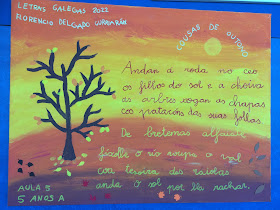 LETRAS GALEGAS 2022
FLORENCIO DELGADO GURRIARÁN
COUSAS DE OUTONO
Andan á roda no ceo
os fillos do sol e a choiva
as arbres xogan ás chapas
cos patacóns das suas follas.
De bretomas alfaiate
faille o río roupa o vol
coa tesoira das raiolas
anda O sol por lle rachar.
AULA 5
5 ANOS A